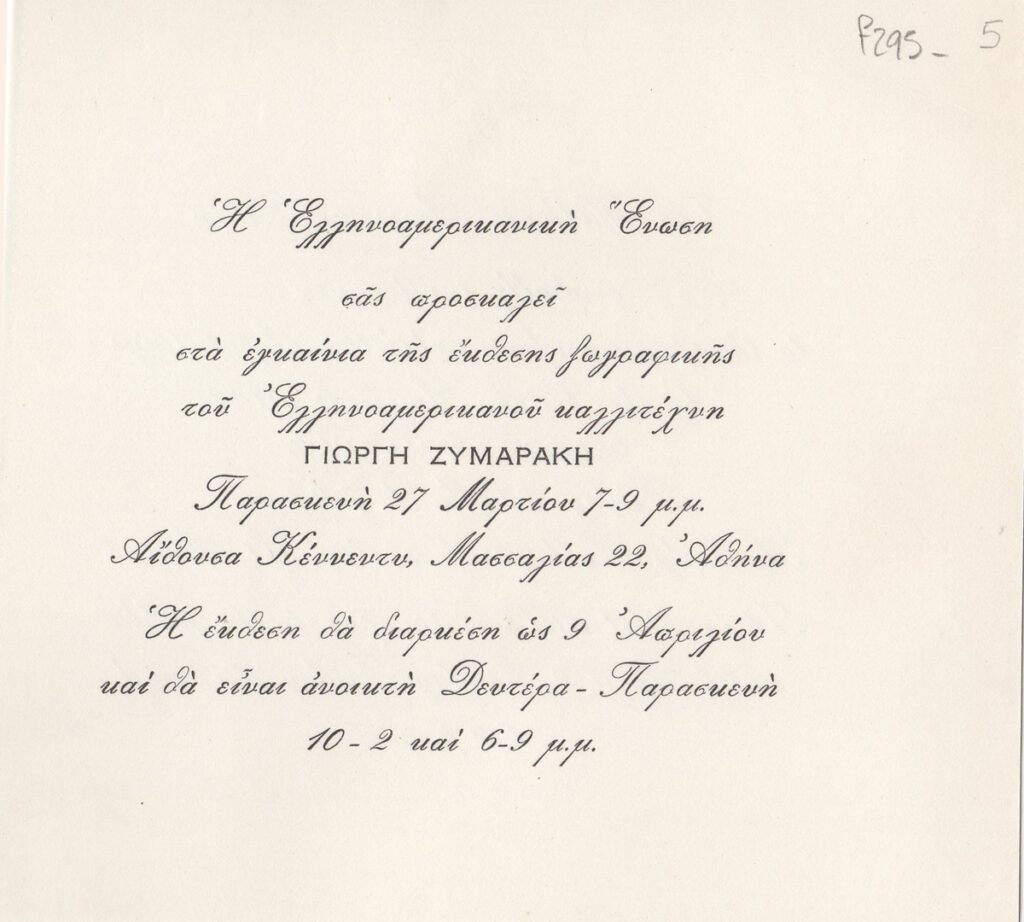 F295 - 5
Ἡ Ἑλληνοαμερικανικὴ Ἕνωση
σᾶς προσκαλεῖ
στὰ ἐγκαίνια τῆς ἔκθεσης ζωγραφικῆς
τοῦ Ἑλληνοαμερικανοῦ καλλιτέχνη
ΓΙΩΡΓΗ ΖΥΜΑΡΑΚΗ
Παρασκευὴ 27 Μαρτίου 7-9 μ.μ.
Αἴθουσα Κέννεντυ, Μασσαλίας 22, Ἀθήνα
Ἡ ἔκθεση θὰ διαρκέση ὡς 9 Ἀπριλίου
καί θὰ εἶναι ἀνοικτὴ Δευτέρα - Παρασκευὴ
10 - 2 καί 6-9 μ.μ.